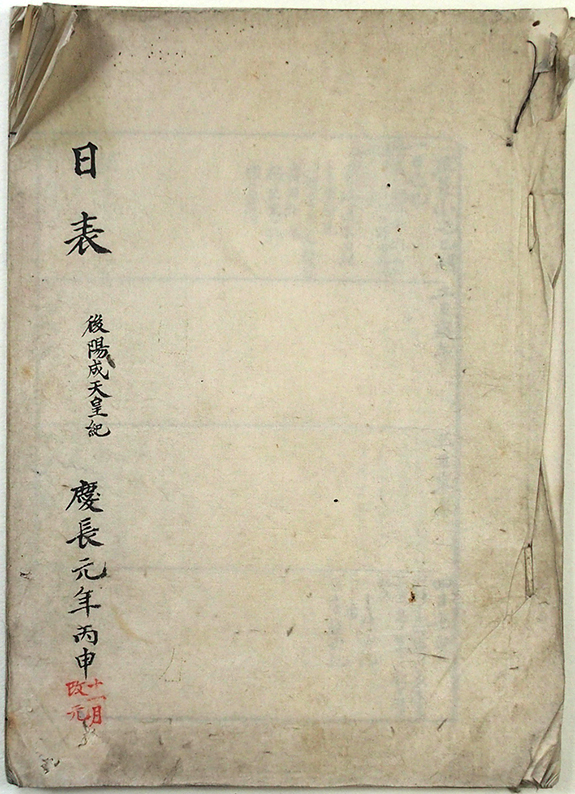 日表 後陽成天皇紀 慶長元年丙申
十一月
改元